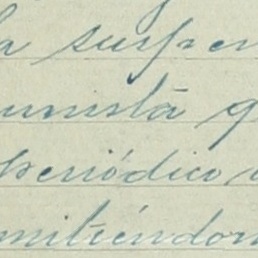 a suspen
umstá g
periódico
mitiéndom